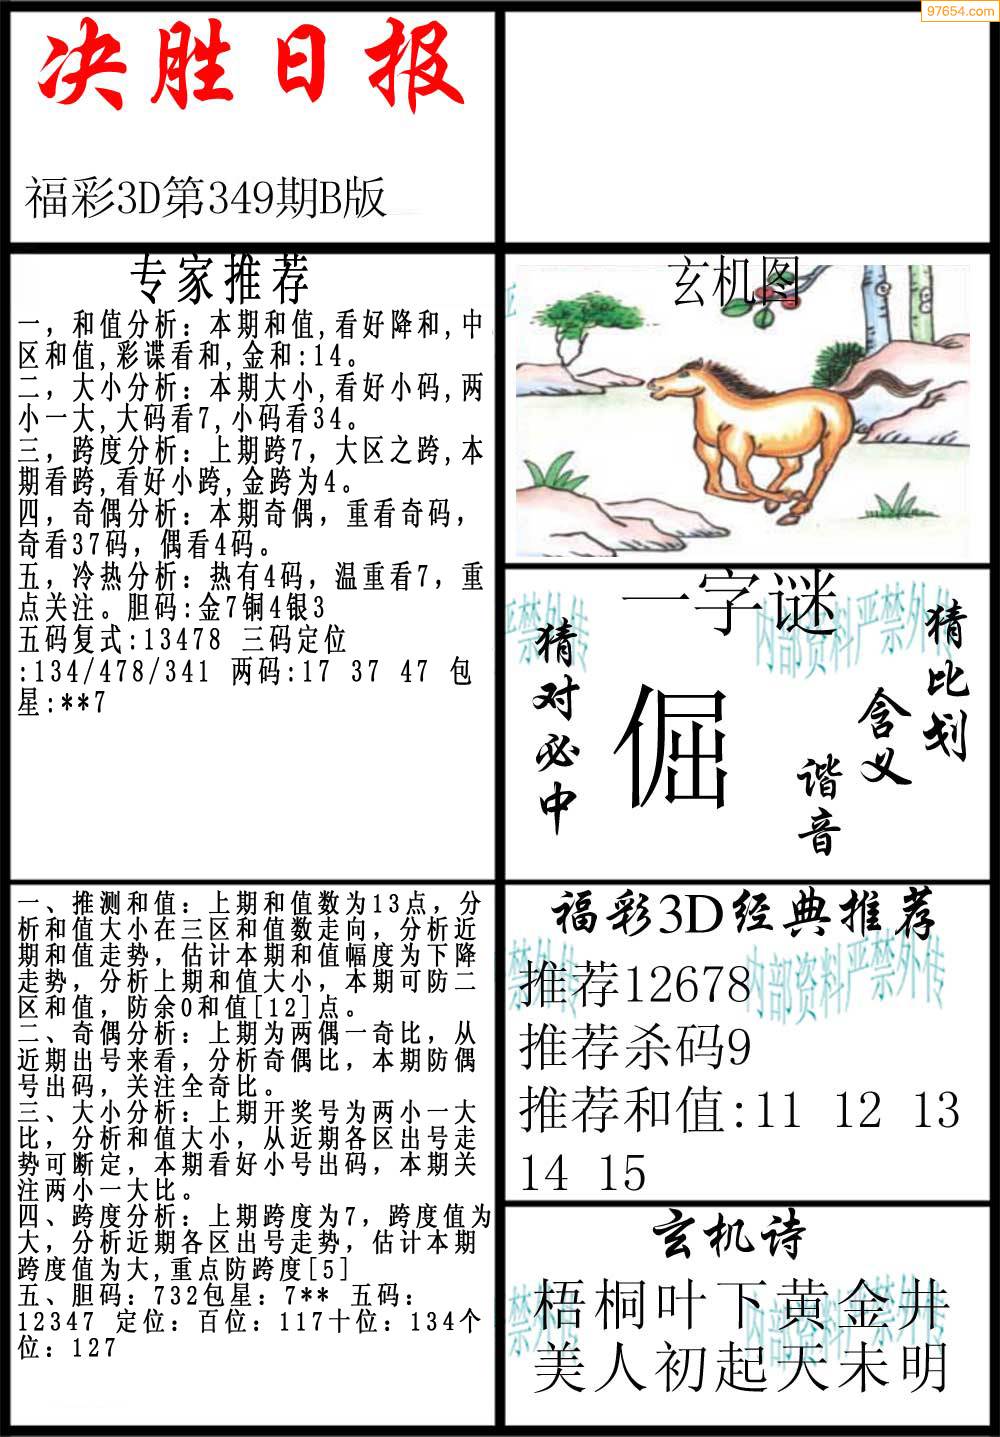 97654.com
决胜日报
福彩3D第349期B版
专家推荐
一，和值分析：本期和值,看好降和,中
区和值,彩谍看和,金和:14。
二，大小分析：本期大小,看好小码,两
小一大,大码看7,小码看34。
三，跨度分析：上期跨7，大区之跨,本
期看跨,看好小跨,金跨为4。
四，奇偶分析：本期奇偶，重看奇码，
奇看37码，偶看4码。
五，冷热分析：热有4码，温重看7，重
点关注。胆码:金7铜4银3
五码复式:13478 三码定位
:134/478/341 两码:17 37 47 包
星:**7
玄机图
一字谜
猜对必中
倔
谐音
含义
猜比划
内部资料严禁外传
一、推测和值：上期和值数为13点，分
析和值大小在三区和值数走向，分析近
期和值走势，估计本期和值幅度为下降
走势，分析上期和值大小，本期可防二
区和值，防余0和值[12]点。
二、奇偶分析：上期为两偶一奇比，从
近期出号来看，分析奇偶比，本期防偶
号出码，关注全奇比。
三、大小分析：上期开奖号为两小一大
比，分析和值大小，从近期各区出号走
势可断定，本期看好小号出码，本期关
注两小一大比。
四、跨度分析：上期跨度为7，跨度值为
大，分析近期各区出号走势，估计本期
跨度值为大,重点防跨度[5]
五、胆码：732包星：7** 五码：
12347 定位：百位：117十位：134个
位：127
福彩3D经典推荐
推荐12678
推荐杀码9
推荐和值:11 12 13
14 15
内部资料严禁外传
玄机诗
梧桐叶下黄金井
美人初起天未明
内部资料严禁外传